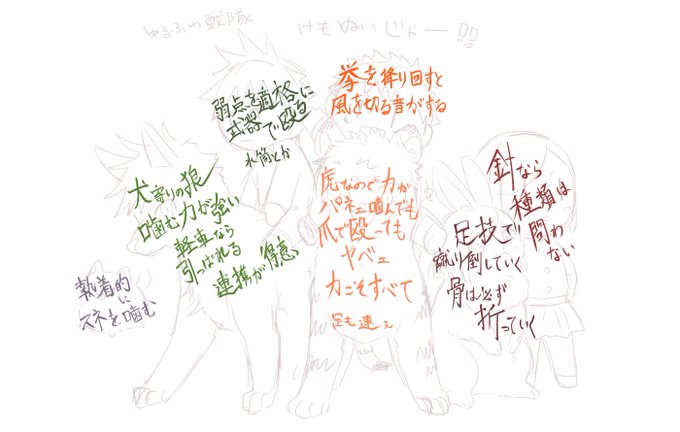 ゆるふわ戦隊 けもぬいじゃー!!
弱点を適格に
武器で殴る
水筒とか
拳を降り回すと
風を切る音がする
犬寄りの狼
噛む力が強い
軽車なら
引っぱれる
連携が得意
虎なので力が
パネェ噛んでも
爪で殴っても
ヤベェ
力こそすべて
足も速ぇ
針なら
種類は
問わない
足技で
蹴り倒していく
骨は必ず
折っていく
執着的
に
スネを噛む